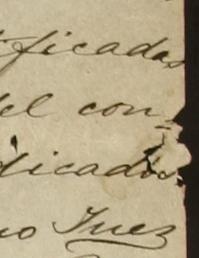 ificadas
del con-
dicados.
no Juez